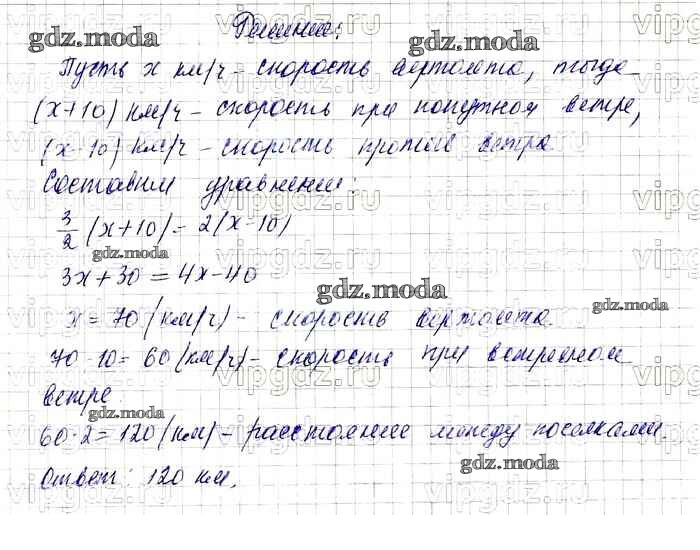 Решение:
Пусть x км/ч - скорость вертолета, тогда
(x+10) км/ч - скорость при попутном ветре,
(x-10) км/ч - скорость против ветра
Составим уравнение:
3/2 (x+10) = 2(x-10)
3x+30 = 4x-40
x = 70 (км/ч) - скорость вертолета.
70-10 = 60 (км/ч) - скорость при встречном
ветре.
60·2 = 120 (км) - расстояние между поселками.
Ответ: 120 км.
gdz.moda
gdz.moda
gdz.moda
gdz.moda
gdz.moda
gdz.moda
gdz.moda
vipgdz.ru